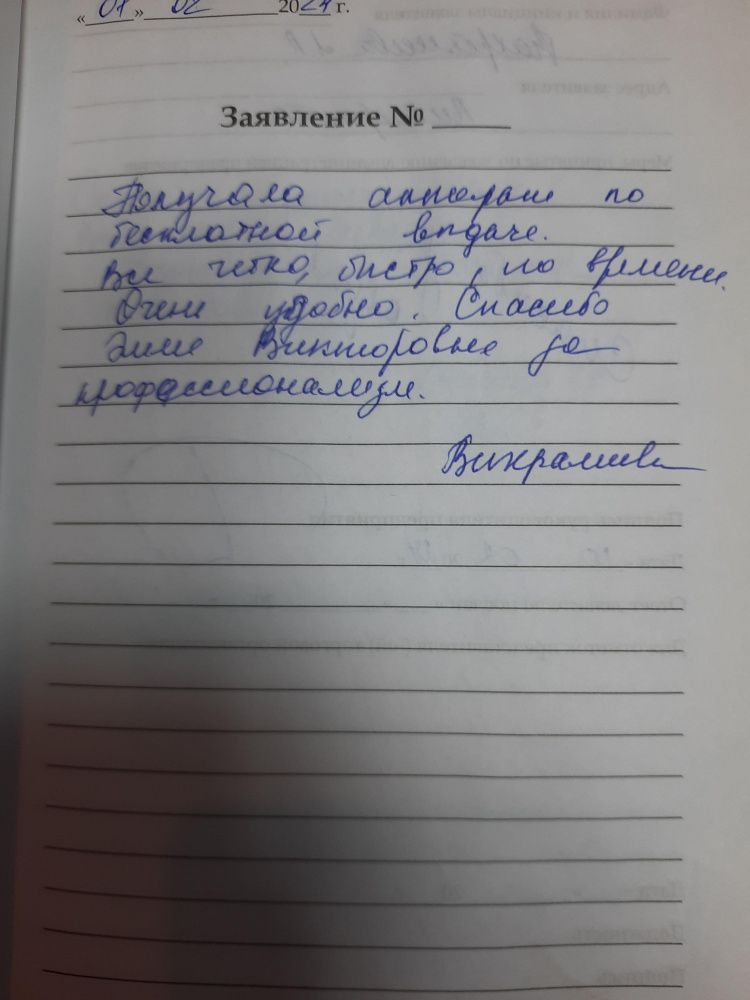 «01» 02 2024 г.
Заявление №
Получала аппараты по
бесплатной выдаче.
Все четко, быстро, по времени.
Очень удобно. Спасибо
Викторовне за
профессионализм.